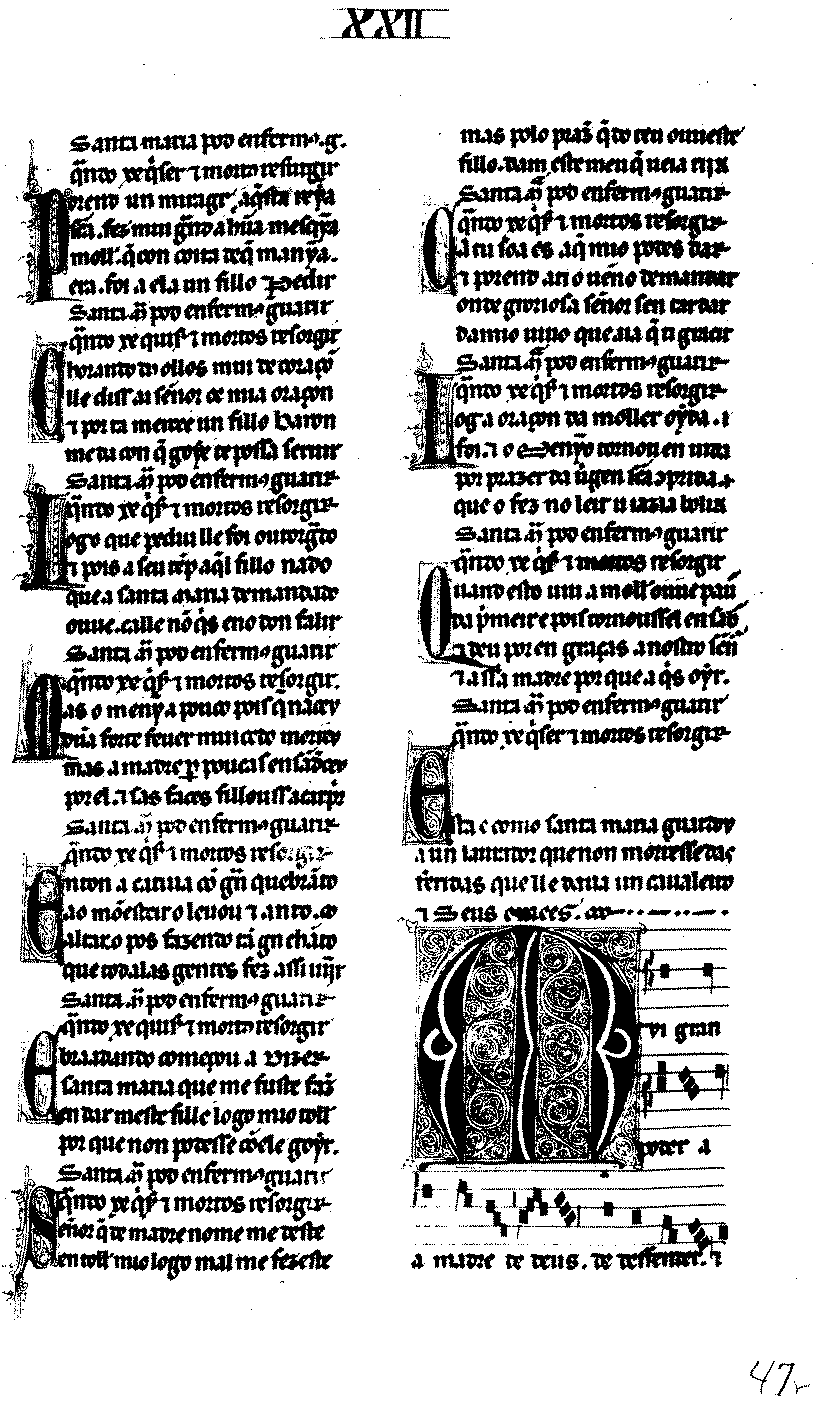 XXII
Santa maria pod enfermos .g.
q̃nto xe q̇ser ⁊ morto resurgir
Porend un miragr aq̃sta reỹa
sc̃a. fez mui gñd a hũa mesq̃ỹa
moll'. q̃ con coita de q̃ manỹa.
era. foi a ela un fillo pedir
Santa m̃ pod enfermos guarir
q̃nto xe quis' ⁊ mortos resorgir
Chorando dos ollos mui de coraçõ
lle diss' ai señor oe mia oraçon
⁊ por ta mercee un fillo baron
me da con q̃ goye te possa seruir
Santa m̃ pod enfermos guarir
q̃nto xe q̇s' ⁊ mortos resorgir
Logo que pediu lle foi outorg̃do
⁊ pois a seu tẽp aq̃l fillo nado
que a santa maria demandado
ouue. ca lle nõ q̇s eno don falir
Santa m̃ pod enfermos guarir
q̃nto xe q̇s' ⁊ mortos resorgir.
Mas o menỹo a pouco pois q̃ naceu
dũa forte feuer mui cedo morreu
mas a madre p̱ poucas ensãdeceu
por el. ⁊ sas faces fillouss a carpir
Santa m̃ pod enfermos guarir
q̃nto xe q̇s' ⁊ mortos resorgir
Enton a catiua cõ gñ quebrãto
ao mõesteiro leuou ⁊ ant o. co
altar o pos fazendo tã gn chãto
que todalas gentes fez assi uiĩr
Santa m̃ pod enfermos guarir
q̃nto xe quis' ⁊ mortos resorgir
E braadando começou a dizer
santa maria que me fuste faz̃
en dar m este fill e logo mio toll'
por que non podesse cõele goyr.
Santa m̃ pod enfermos guarir
q̃nto xe q̇s' ⁊ mortos resorgir
Señor q̃ de madre nome me deste
en toll' mio logo mal me fezeste
mas polo praz̃ q̃ do teu ouueste
fillo. dam este meu q̃ ueia rijr
Santa m̃ pod enfermos guarir
q̃nto xe q̇s' ⁊ mortos resorgir
Ca tu soa es. a q̃ mio podes dar
⁊ porend a ti o ueño demandar
onde groriosa señor sen tardar
da mio uiuo que aia q̃ ti gracir
Santa m̃ pod enfermos guarir
q̃nto xe q̇s' ⁊ mortos resorgir
Loga oraçon da moller oỹda. i
foi. ⁊ o menỹo tornou en uida
por prazer da ũgen sc̃a ↄprida.
que o fez no leit u iazia bolir
Santa m̃ pod enfermos guarir
q̃nto xe q̇s' ⁊ mortos resorgir
Quand esto uiu a moll' ouue pau'
da p̃meir e pois tornousse l en sab'
⁊ deu por en graças a nostro sen̄
⁊ a ssa madre por que a q̇s oyr.
Santa m̃ pod enfermos guarir
q̃nto xe q̇ser ⁊ mortos resorgir
Esta e como santa maria guardou
a un laurador que non morresse das
feridas que lle daua un caualeiro
⁊ Seus omees. co
Mui gran
poder a
a madre de deus. de deffender. ⁊
47r